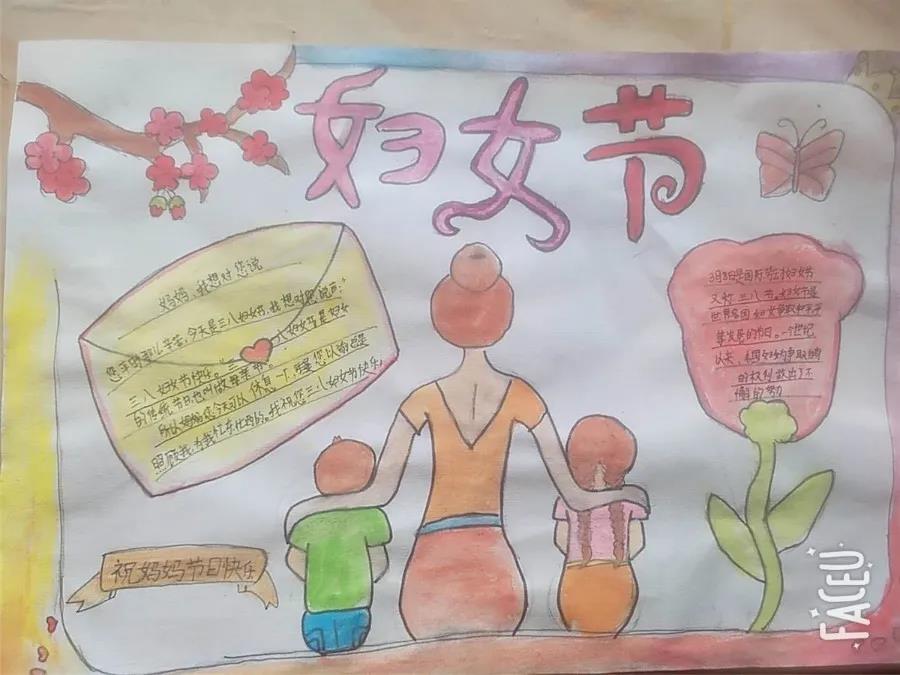 妇女节
妈妈，我想对您说
您平时那么辛苦，今天是三八妇女节，我想对您说声："
三八妇女节快乐。"三八妇女节是妇女
的传统节日也叫做
所以妈妈您今天可以休息一下
照顾我，为我忙东忙西的。我祝您三八妇女节快乐，
祝妈妈节日快乐
3月8日是国际劳动妇女节
又称三八节。妇女节是
世界各国妇女争取和平平
等发展的节日。一个世纪
以来，各国妇女为争取她们
的权利做出了不
懈的努力
FACEU